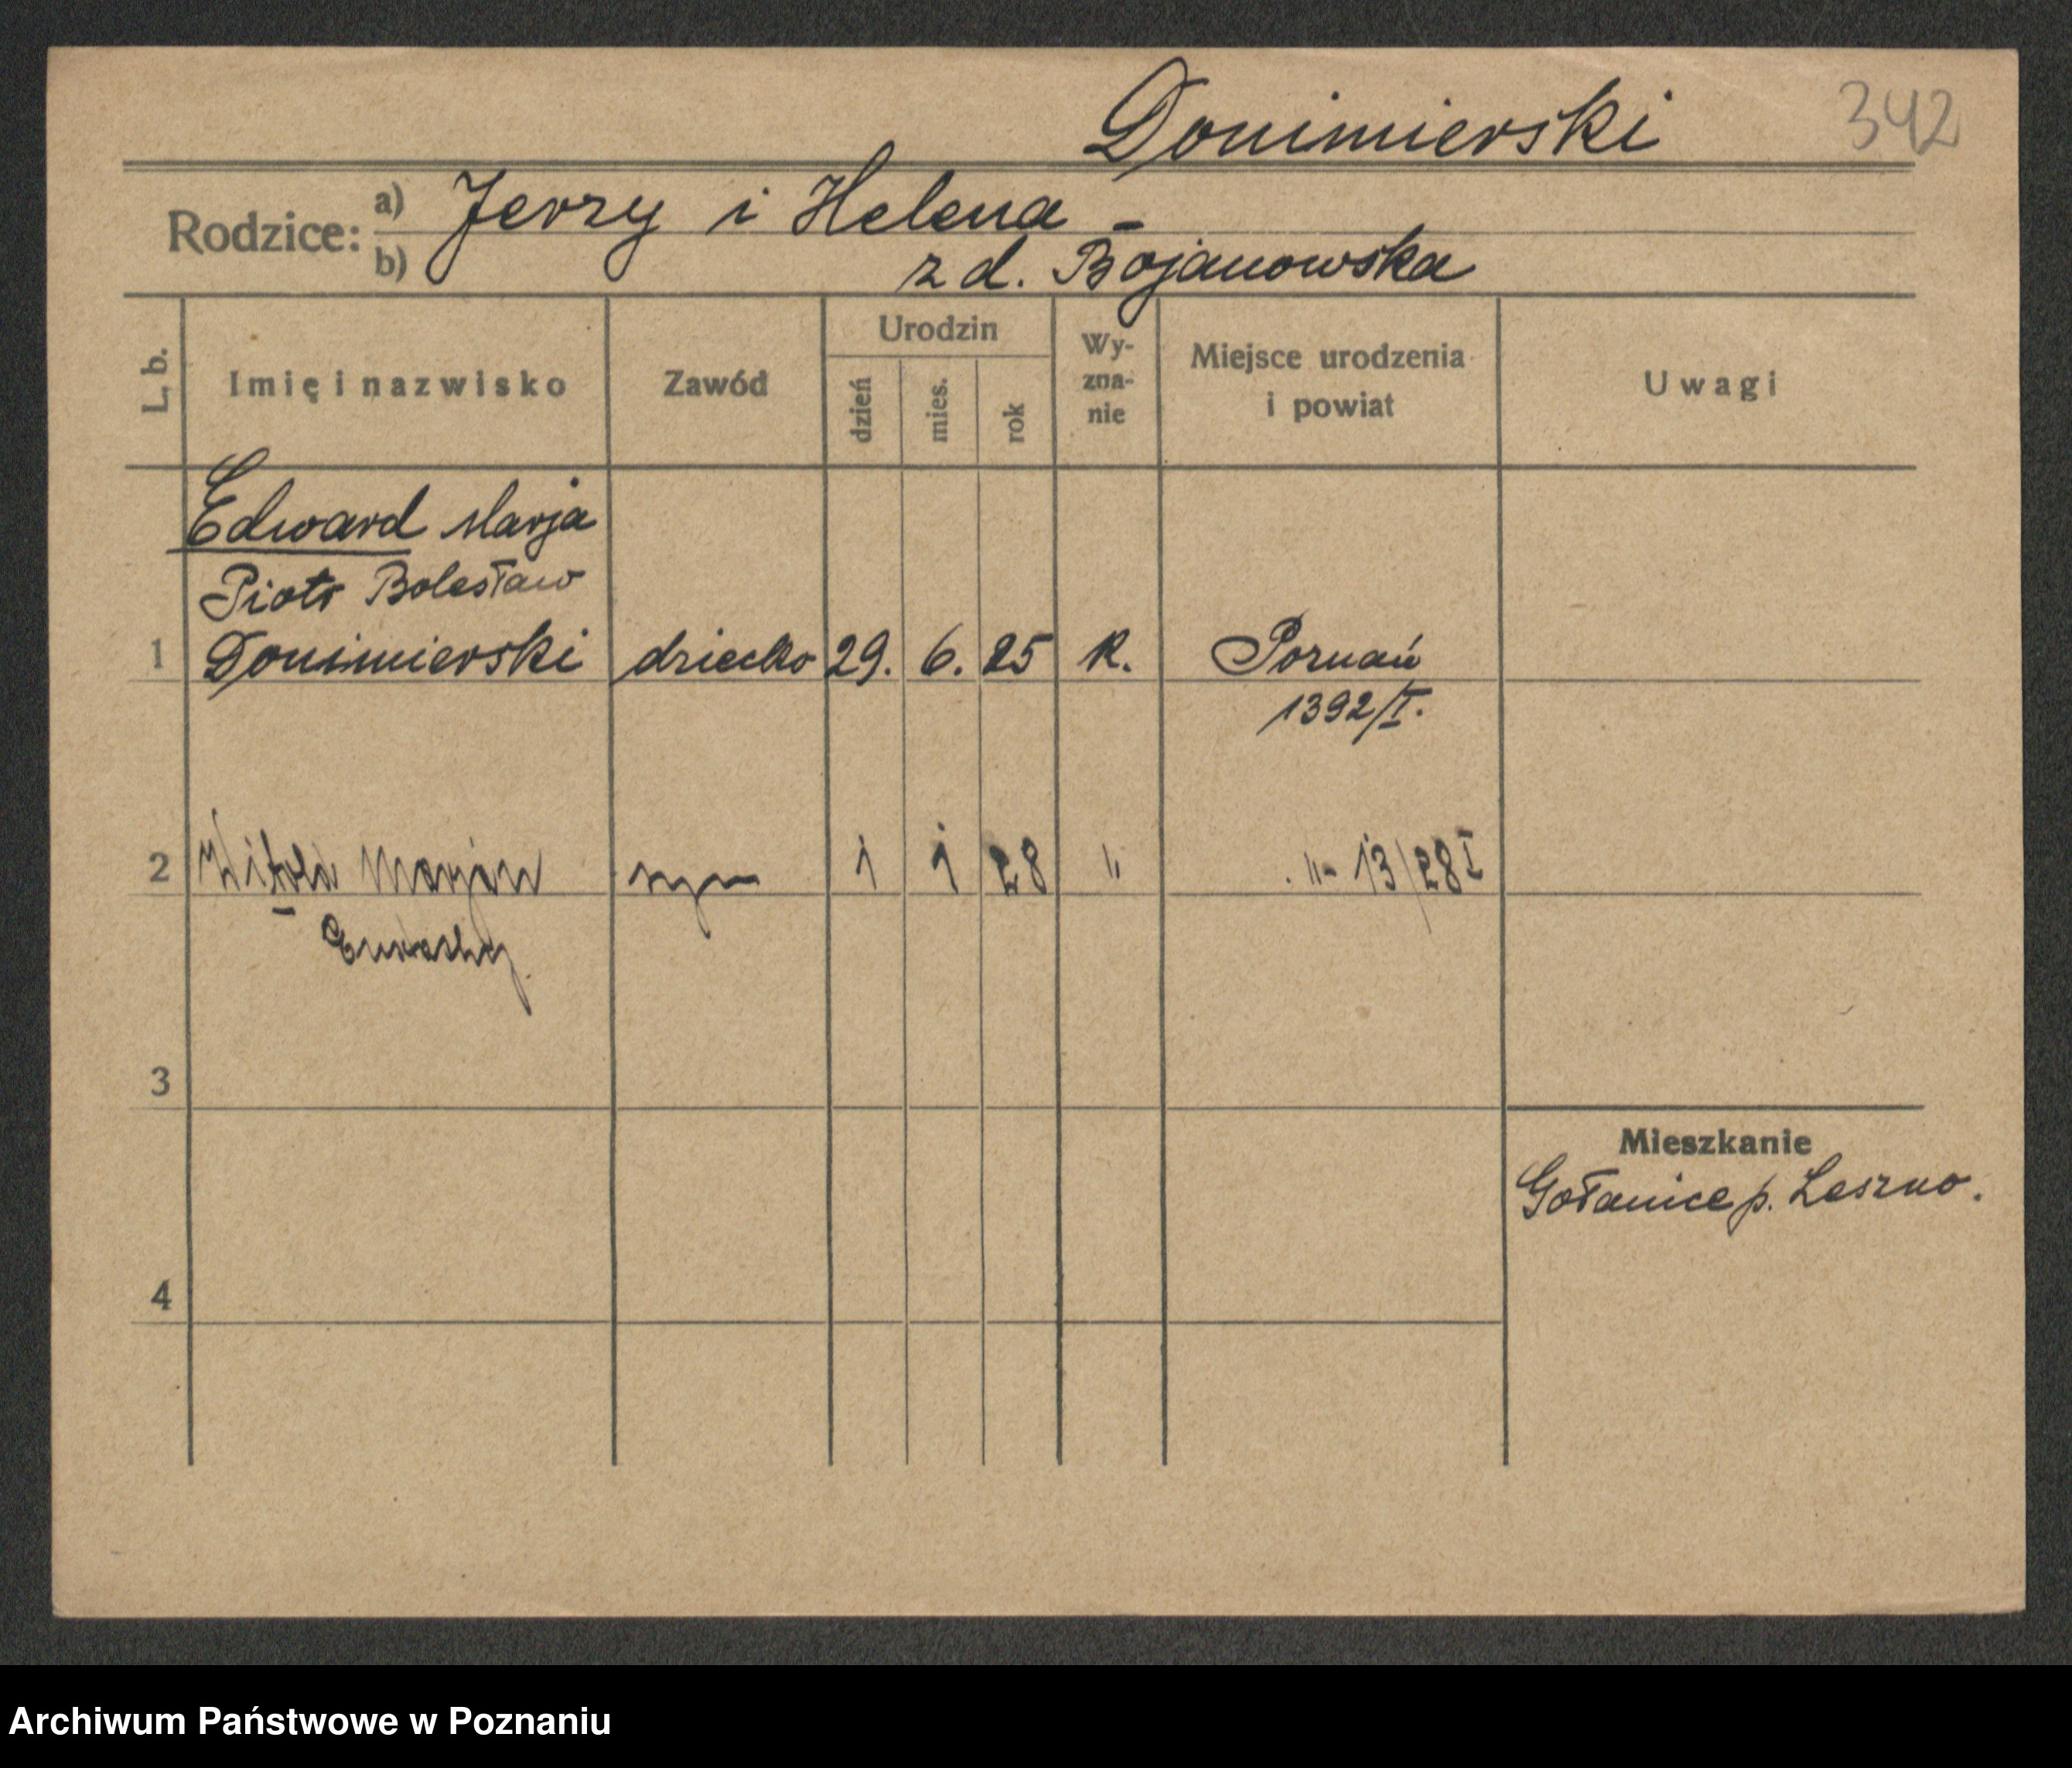 Donimierski 342
Rodzice: a) Jerzy i Helena -
b) z d. Bojanowska
L. b. Imię i nazwisko Zawód Urodzin dzień mies. rok Wy-zna-nie Miejsce urodzenia i powiat Uwagi
Edward Marja
Piotr Bolesław
1 Donimierski dziecko 29. 6. 25 k. Poznań
1392/I.
2 Witold Marjan syn 1 1 28 " " - 13/28 I
3
Mieszkanie
Gołanice p. Leszno.
4
Archiwum Państwowe w Poznaniu